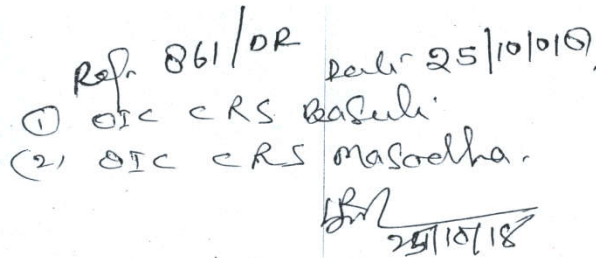 Ref. 861/DR Date 25/10/018,
① OIC CRS Basuli.
(2) OIC CRS Masodha.
25/10/18